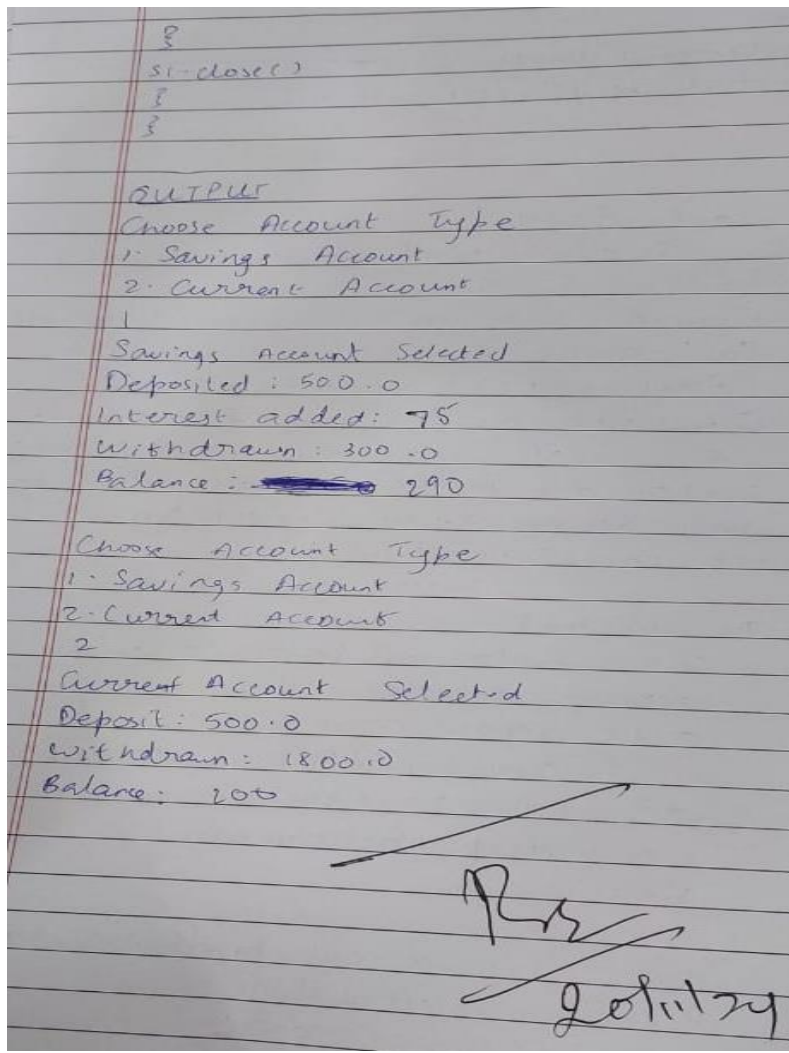 }
s1.close()
}
}
OUTPUT
Choose Account Type
1. Savings Account
2. Current Account
1
Savings Account Selected
Deposited : 500.0
Interest added: 75
Withdrawn : 300.0
Balance : 290
Choose Account Type
1. Savings Account
2. Current Account
2
Current Account Selected
Deposit: 500.0
Withdrawn : 1800.0
Balance: 200
20/11/24